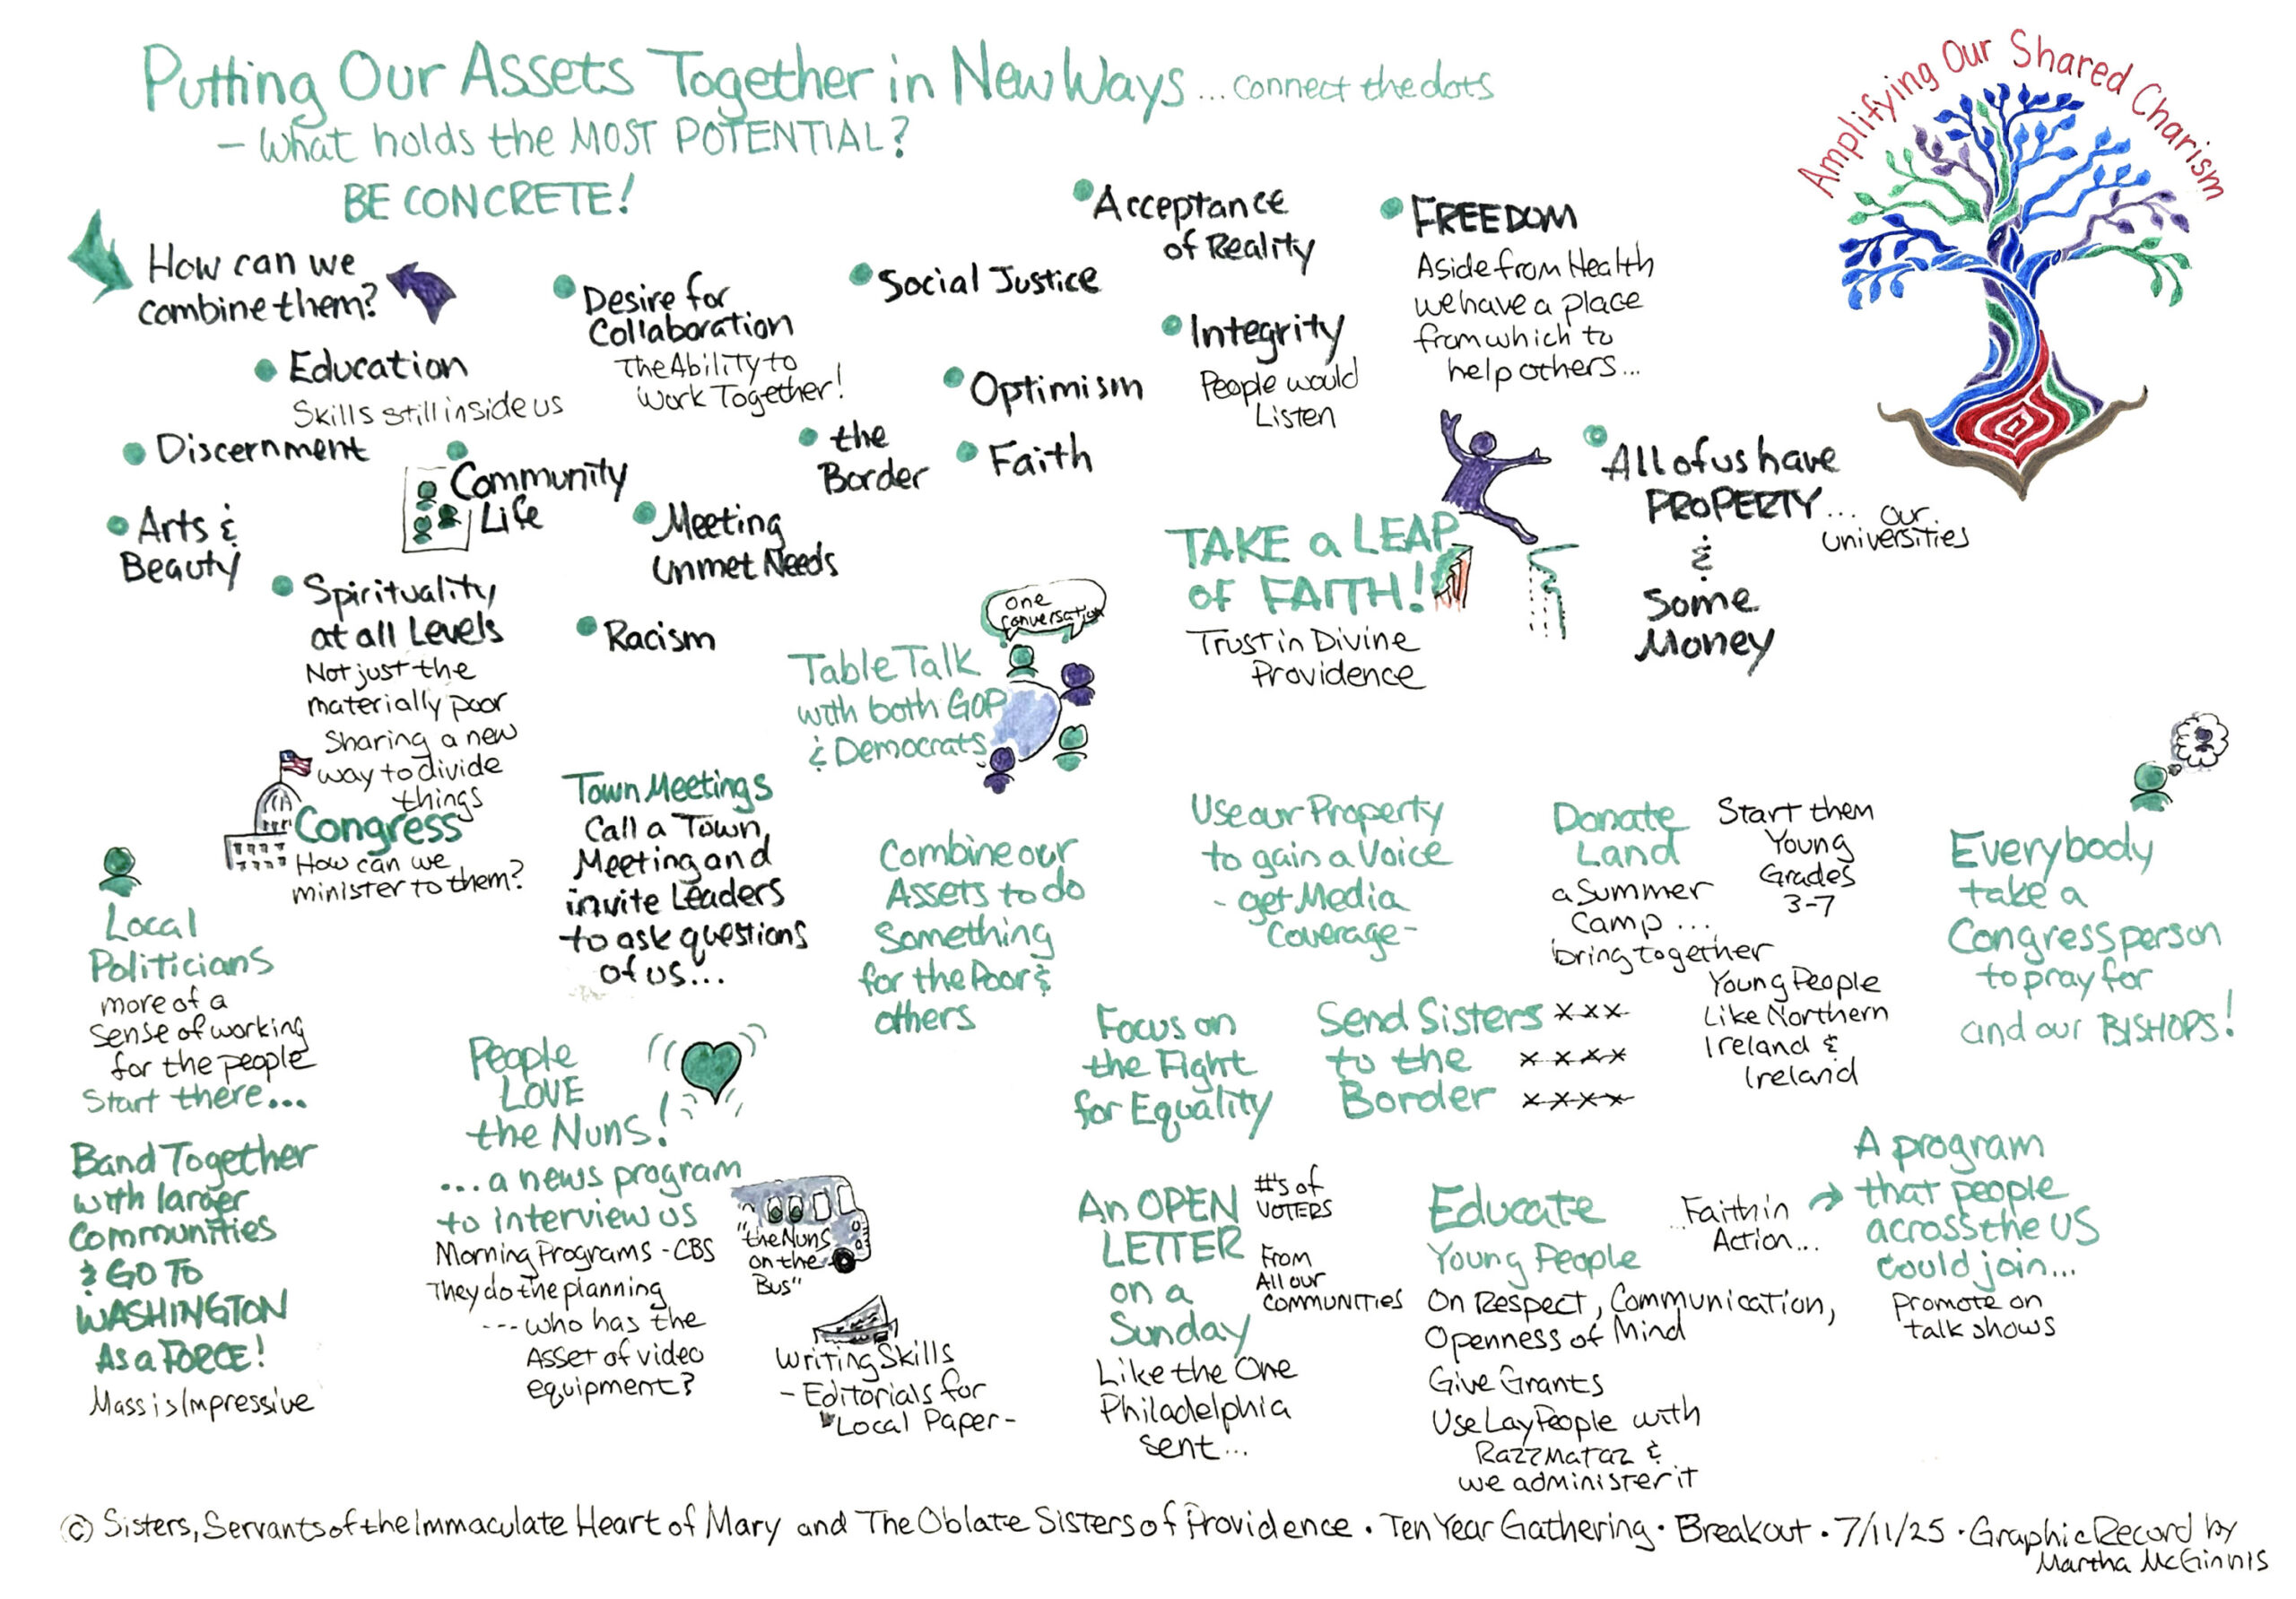 Putting Our Assets Together in New Ways ... connect the dots
- What holds the MOST POTENTIAL?
BE CONCRETE!
Amplifying Our Shared Charism
How can we
combine them?
Education
Skills still inside us
Discernment
Arts &
Beauty
Community
Life
Spirituality
at all Levels
Not just the
materially poor
Sharing a new
way to divide
things
Desire for
Collaboration
The Ability to
Work Together!
Social Justice
Optimism
the
Border
Faith
Meeting
Unmet Needs
Racism
Acceptance
of Reality
Integrity
People would
Listen
FREEDOM
Aside from Health
we have a place
from which to
help others...
All of us have
PROPERTY... our
universities
&
Some
Money
TAKE a LEAP
OF FAITH!
Trust in Divine
Providence
one
conversation
Table Talk
with both GOP
& Democrats
Congress
How can we
minister to them?
Local
Politicians
more of a
sense of working
for the people
Start there...
Band Together
with larger
Communities
& GO TO
WASHINGTON
As a FORCE!
Mass is Impressive
Town Meetings
Call a Town
Meeting and
invite Leaders
to ask questions
of us...
People
LOVE
the Nuns!
...a news program
to interview us
Morning Programs - CBS
They do the planning
--- who has the
Asset of video
equipment?
"the Nuns
on the
Bus"
Writing Skills
- Editorials for
Local Paper -
Combine our
Assets to do
Something
for the Poor &
others
Use our Property
to gain a Voice
- get Media
Coverage -
Focus on
the Fight
for Equality
Send Sisters xxx
to the xxxx
Border xxxx
Donate
Land
a Summer
Camp ...
bring together
Young People
Like Northern
Ireland &
Ireland
Start them
Young
Grades
3-7
Everybody
take a
Congressperson
to pray for
and our BISHOPS!
An OPEN
LETTER
on a
Sunday
Like the One
Philadelphia
sent...
#'s of
VOTERS
From
All our
COMMUNITIES
Educate
Young People
On Respect, Communication,
Openness of Mind
Give Grants
Use Lay People with
Razzmataz &
we administer it
...Faith in
Action...
A program
that people
across the US
could join...
Promote on
talk shows
© Sisters, Servants of the Immaculate Heart of Mary and The Oblate Sisters of Providence • Ten Year Gathering • Breakout • 7/11/25 • Graphic Record by
Martha McGinnis